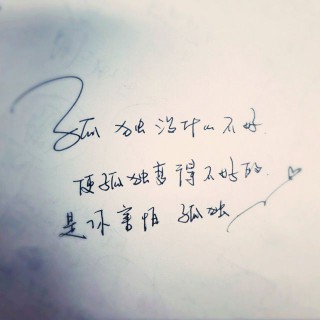 孤独没什么不好
使孤独变得不好的.
是你害怕孤独